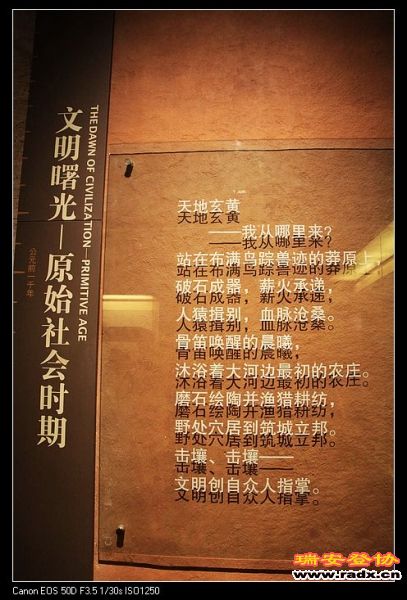 文明曙光—原始社会时期
THE DAWN OF CIVILIZATION—PRIMITIVE AGE
公元前一千年
天地玄黄
——我从哪里来？
站在布满鸟踪兽迹的莽原上，
破石成器，薪火承递，
人猿揖别，血脉沧桑。
骨笛唤醒的晨曦，
沐浴着大河边最初的农庄。
磨石绘陶并渔猎耕纺，
野处穴居到筑城立邦。
击壤、击壤——
文明创自众人指掌。
瑞安登协
www.radx.cn
Canon EOS 50D F3.5 1/30s ISO1250